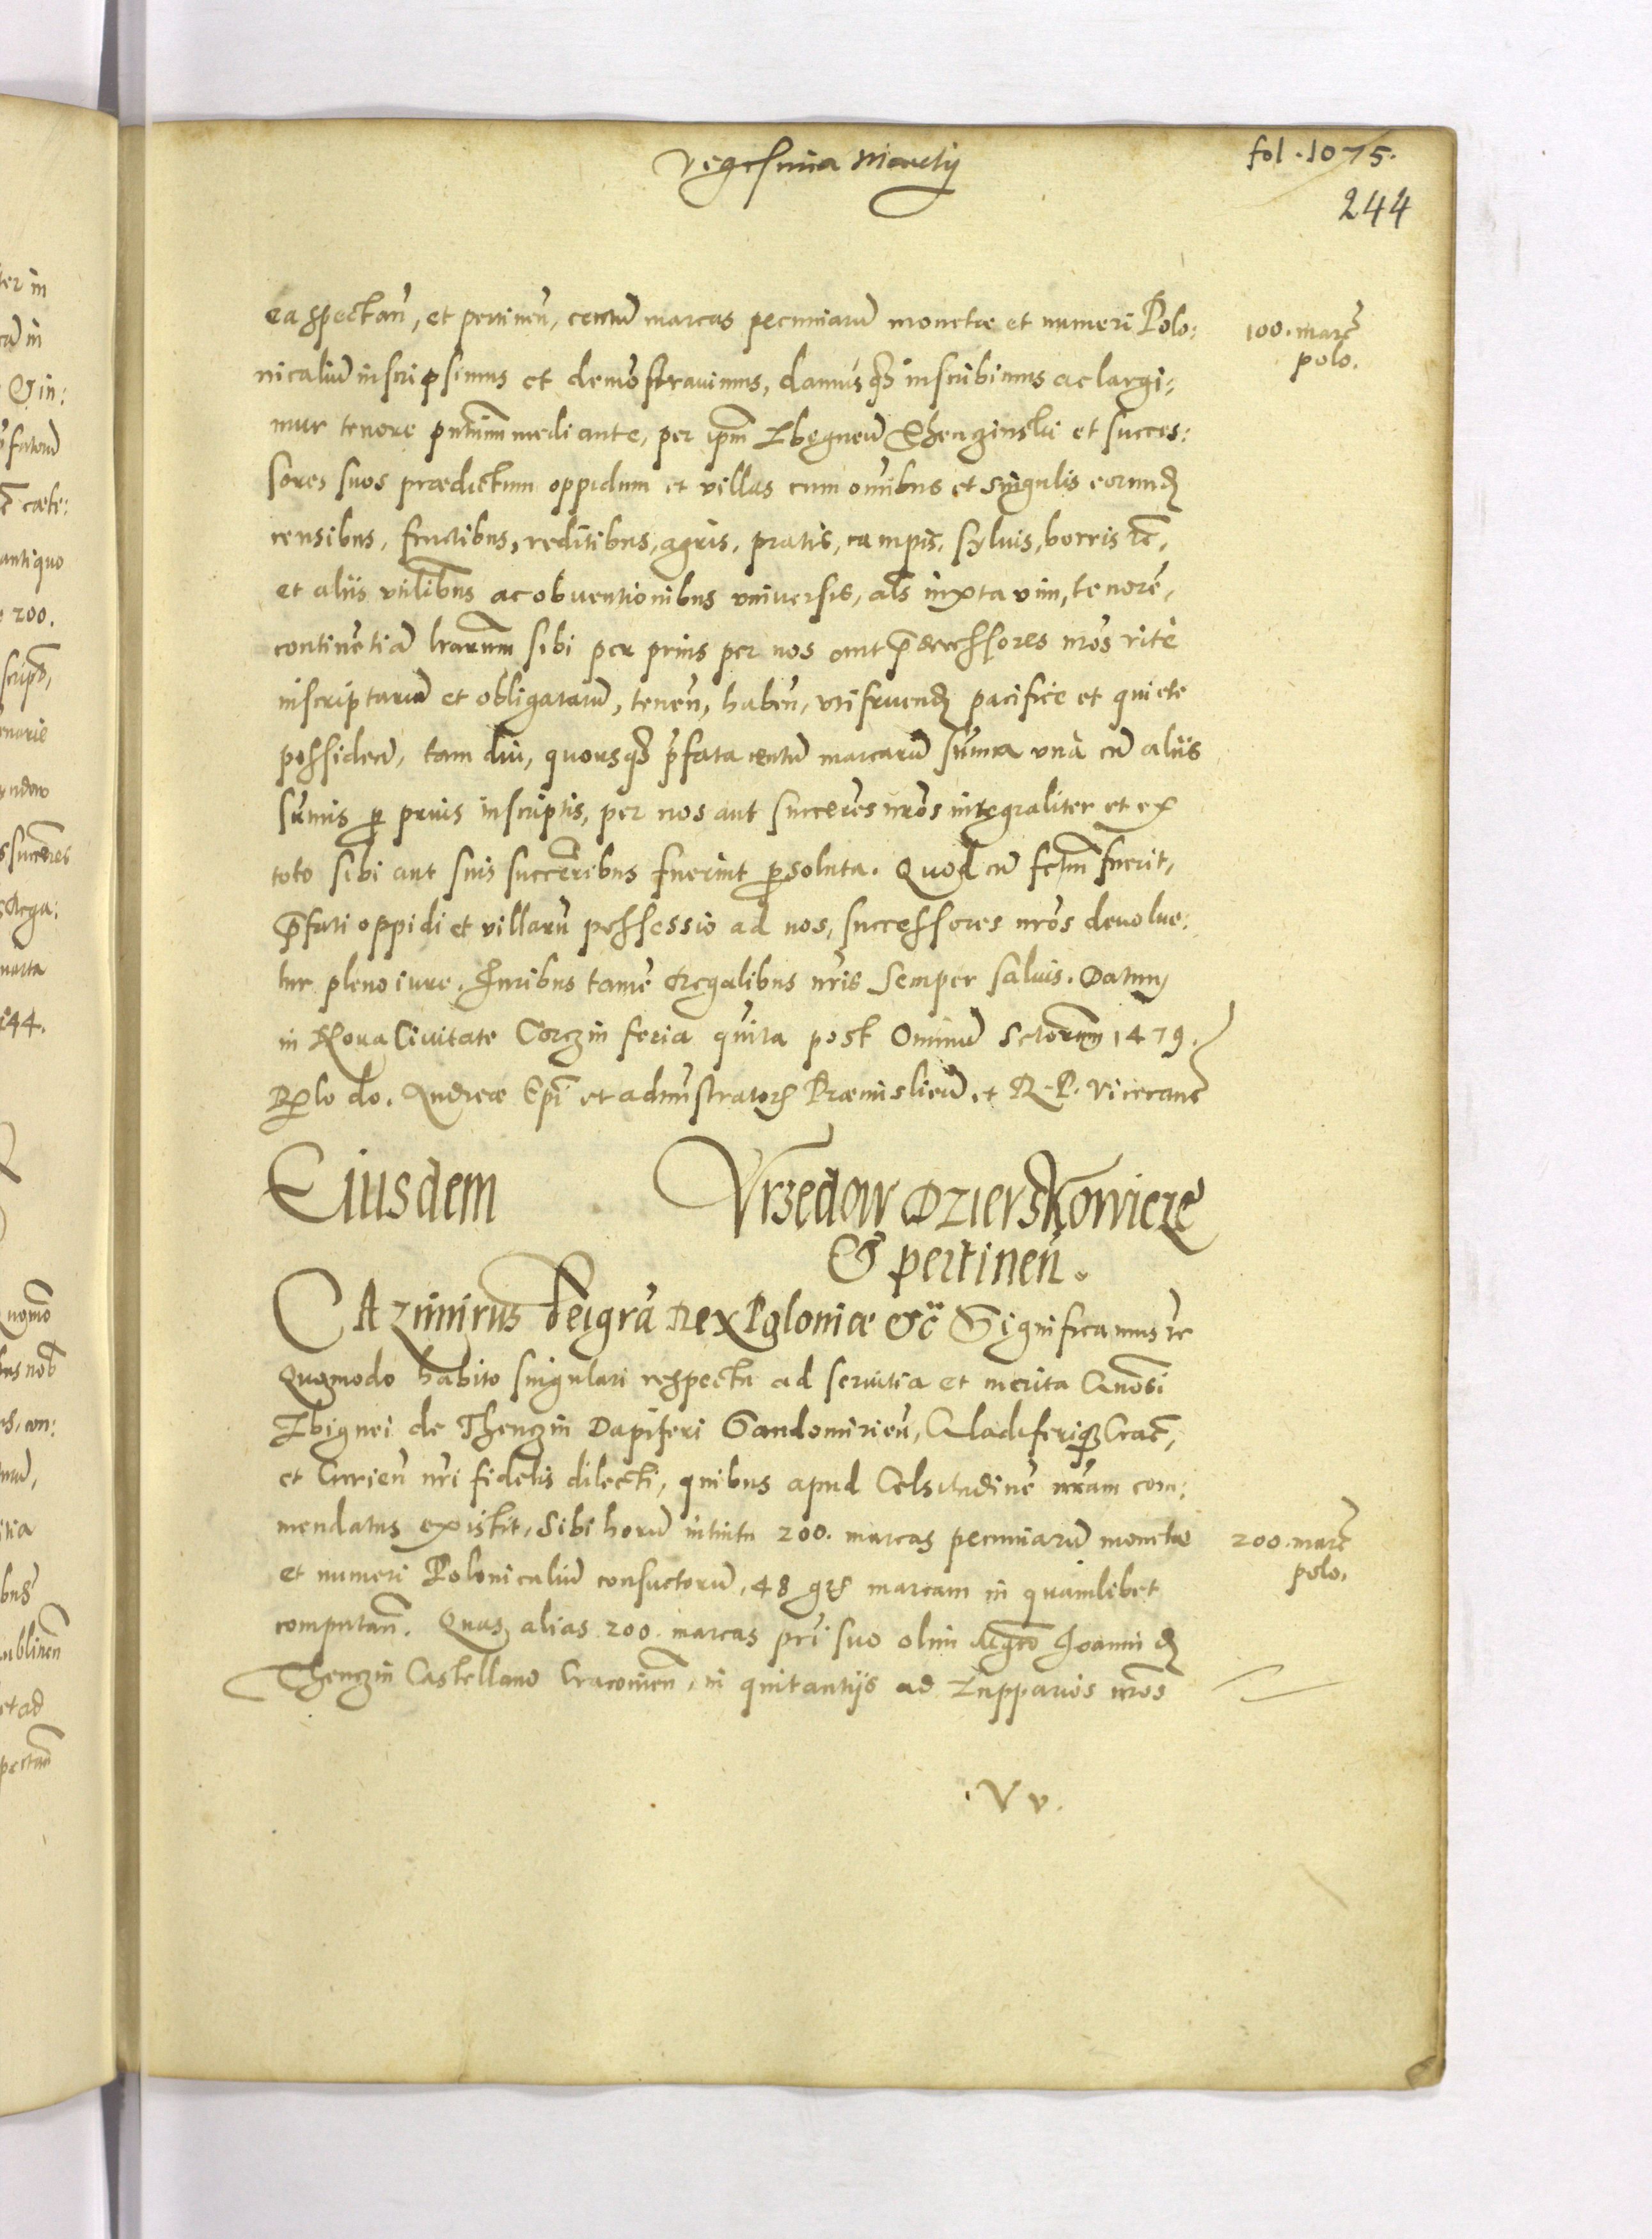 Vigesima Martij
fol. 1075.
244
ea spectan̄, et pertinen̄, centū marcas pecuniarū monetæ et numeri Polo:
100. marc̄
polo.
nicaliū inscripsimus et demōstravimus, damusq̃ inscribimus ac largi:
mur tenore pn̄tium mediante, per ipm̄ Zbigneū Thenczinski et succes:
sores suos prædictum oppidum et villas cum om̄ibus et singulis eorund̃
censibus, fructibus, reditibus, agris, pratis, campis, sylvis, borris etc̄,
et aliis utilibus ac obventionibus universis, als̄ iuxta vim, tenorē,
continētiā lrārum sibi per prius per nos aut p̄decessores nr̄os ritè
inscriptarū et obligatarū, tenen̄, haben̄, utifruend̃ pacifice et quiete
possidend̃, tam diu, quousq̃ p̄fata centū marcarū sūma unà cū aliis
sūmis p̱ prius inscriptis, per nos aut succeres̄ nr̄os integraliter et ex
toto sibi aut suis succer̄ibus fuerint p̱soluta. Quod cū fctm̄ fuerit,
p̄fati oppidi et villarū possessio ad nos, successores nr̄os devolve:
tur pleno iure. Iuribus tamē Regalibus nr̄is semper salvis. Datum
in Nova Civitate Corczin feria quīta post Omniū Sctorum 1479.
R̃lo do. Andreæ Epī et admīstratoris Præmislien̄, et R. P. Vicecanc̄
Eiusdem
Vrzedow Dzierskowicze
& pertinen̄.
CAzimirus Dei gr̄a Rex Poloniæ &c̄ Significamus etc
Quomodo habito singulari respectu ad servitia et merita Gnōsi
Zbignei de Thenczin Dapiferi Sandomirien̄, Gladiferiq̃ Crac̄,
et Curien̄ nr̄i fidelis dilecti, quibus apud Celsitudinē nr̄am com:
mendatus existit, Sibi horū intuitu 200. marcas pecuniarū monetæ
200. marc̄
polo.
et numeri Polonicaliū consuetorū, 48 gr̄ marcam in quamlibet
computan̄. Quas alias 200. marcas pr̄i suo olim Mgco Ioanni d̃
Thenczin Castellano Cracovien̄, in quitantijs ad Zupparios nr̄os
. V v.